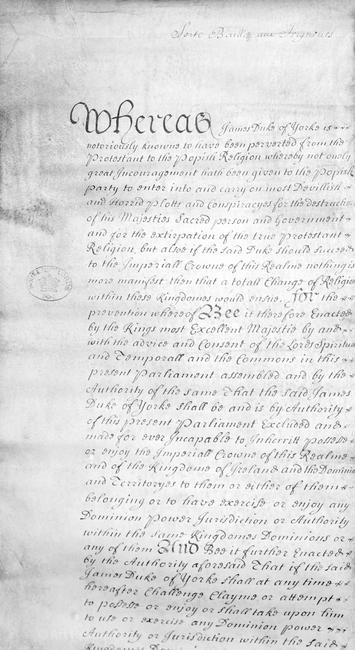 Soit Baillé aux Seigneurs
Whereas James Duke of Yorke is
notoriously knowne to have been perverted from the
Protestant to the Popish Religion whereby not onely
great Incouragement hath been given to the Popish
party to enter into and carry on most Devillish
and Horrid Plotts and Conspiracyes for the destruction
of his Majesties Sacred person and Government
and for the extirpation of the true Protestant
Religion, but alsoe if the said Duke should succeed
to the Imperiall Crowne of this Realme nothing is
more manifest then that a totall Change of Religion
within these Kingdomes would ensue. For the
prevention whereof Bee it therefore Enacted
by the Kings most Excellent Majestie by and
with the advice and Consent of the Lords Spirituall
and Temporall and the Commons in this
present Parliament assembled and by the
Authority of the same That the said James
Duke of Yorke shall be and is by Authority
of this present Parliament Excluded and
made for ever Incapable to Inheritt Possesse
or enjoy the Imperiall Crowne of this Realme
and of the Kingdome of Ireland and the Dominions
and Territoryes to them or either of them
belonging or to have exercise or enjoy any
Dominion Power Jurisdiction or Authority
within the same Kingdomes Dominions or
any of them And Bee it further Enacted
by the Authority aforesaid That if the said
James Duke of Yorke shall at any time
hereafter Challenge Clayme or attempt
to possesse or enjoy or shall take upon him
to use or exercise any Dominion power
Authority or Jurisdiction within the said